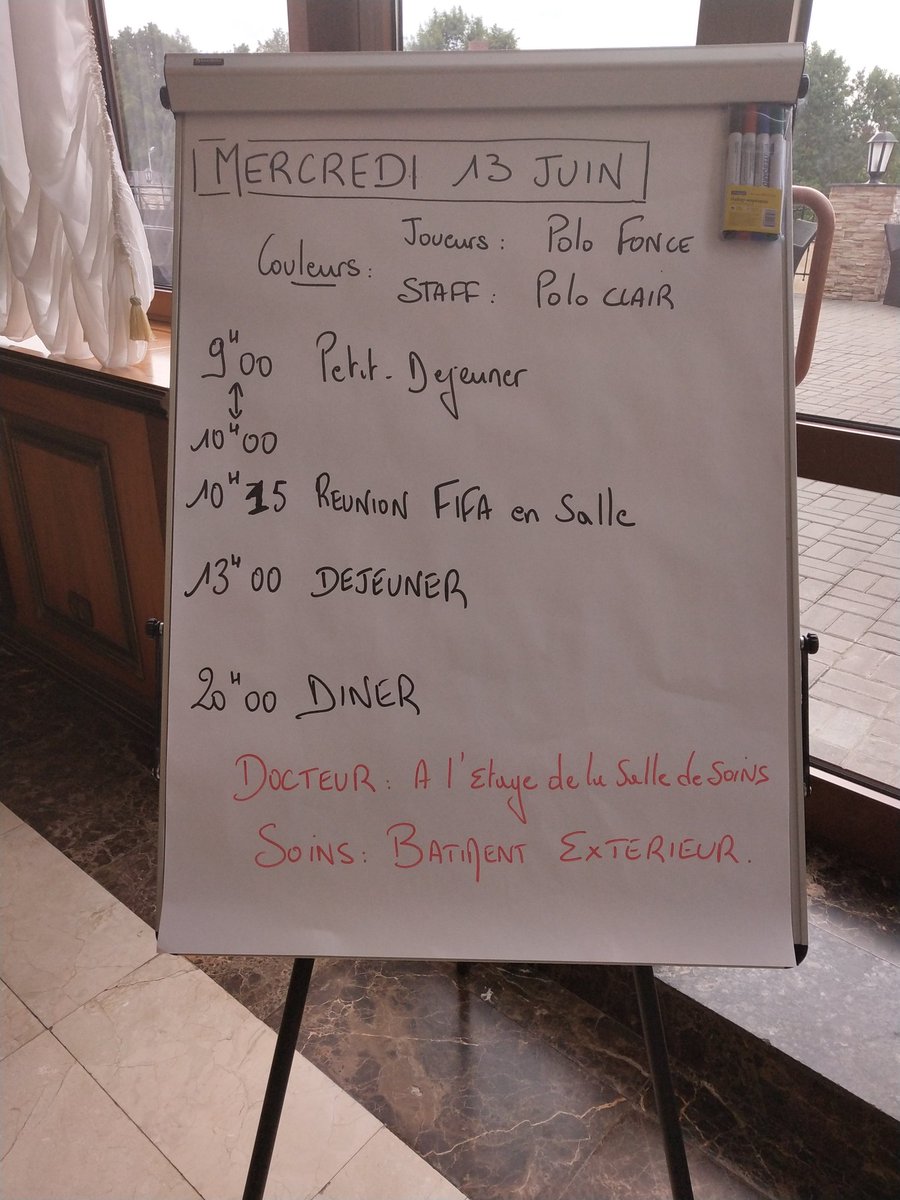 MERCREDI 13 JUIN
Couleurs : Joueurs : Polo FONCE
STAFF : Polo CLAIR
9H00 Petit-Dejeuner
↕
10H00
10H15 REUNION FIFA en Salle
13H00 DEJEUNER
20H00 DINER
DOCTEUR : A l'Etage de la Salle de SOINS
SOINS : BATIMENT EXTERIEUR.